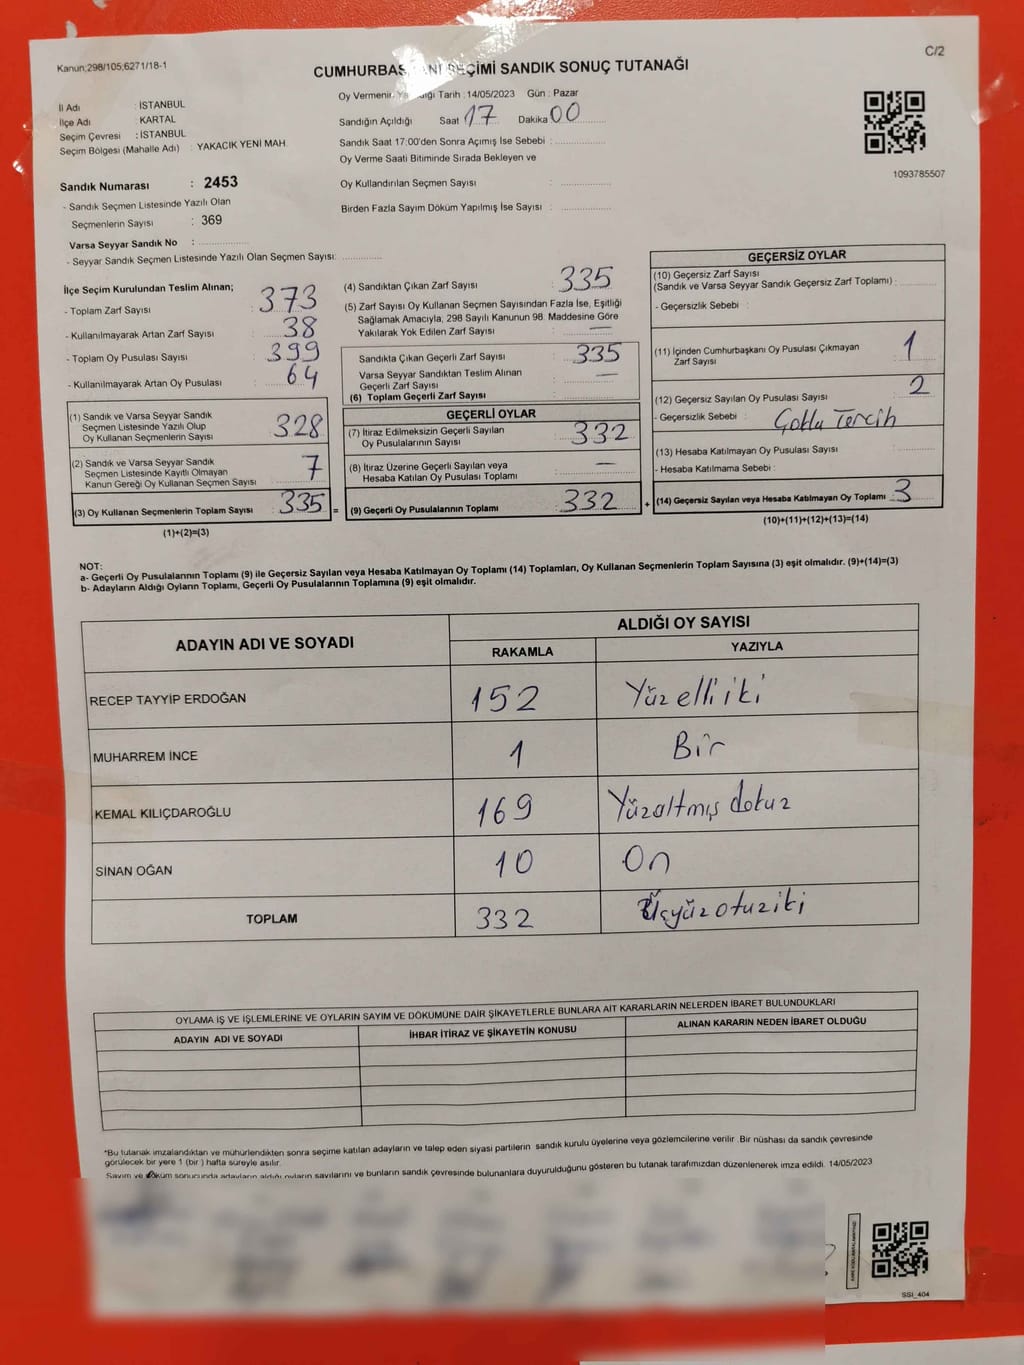 Kanun;298/105;6271/18-1
C/2
CUMHURBAŞKANI SEÇİMİ SANDIK SONUÇ TUTANAĞI
İl Adı : İSTANBUL
İlçe Adı : KARTAL
Seçim Çevresi : İSTANBUL
Seçim Bölgesi (Mahalle Adı) : YAKACIK YENİ MAH.
Oy Vermenin Tarih : 14/05/2023 Gün : Pazar
Sandığın Açıldığı Saat 17 Dakika 00
Sandık Saat 17:00'den Sonra Açımış İse Sebebi :
Oy Verme Saati Bitiminde Sırada Bekleyen ve
Oy Kullandırılan Seçmen Sayısı :
Birden Fazla Sayım Döküm Yapılmış İse Sayısı :
1093785507
Sandık Numarası : 2453
- Sandık Seçmen Listesinde Yazılı Olan
Seçmenlerin Sayısı : 369
Varsa Seyyar Sandık No :
- Seyyar Sandık Seçmen Listesinde Yazılı Olan Seçmen Sayısı:
İlçe Seçim Kurulundan Teslim Alınan;
- Toplam Zarf Sayısı : 373
- Kullanılmayarak Artan Zarf Sayısı : 38
- Toplam Oy Pusulası Sayısı : 399
- Kullanılmayarak Artan Oy Pusulası : 64
(1) Sandık ve Varsa Seyyar Sandık
Seçmen Listesinde Yazılı Olup
Oy Kullanan Seçmenlerin Sayısı : 328
(2) Sandık ve Varsa Seyyar Sandık
Seçmen Listesinde Kayıtlı Olmayan
Kanun Gereği Oy Kullanan Seçmen Sayısı : 7
(3) Oy Kullanan Seçmenlerin Toplam Sayısı : 335 =
(1)+(2)=(3)
(4) Sandıktan Çıkan Zarf Sayısı : 335
(5) Zarf Sayısı Oy Kullanan Seçmen Sayısından Fazla İse, Eşitliği
Sağlamak Amacıyla; 298 Sayılı Kanunun 98. Maddesine Göre
Yakılarak Yok Edilen Zarf Sayısı : —
Sandıkta Çıkan Geçerli Zarf Sayısı : 335
Varsa Seyyar Sandıktan Teslim Alınan
Geçerli Zarf Sayısı : —
(6) Toplam Geçerli Zarf Sayısı :
GEÇERLİ OYLAR
(7) İtiraz Edilmeksizin Geçerli Sayılan
Oy Pusulalarının Sayısı : 332
(8) İtiraz Üzerine Geçerli Sayılan veya
Hesaba Katılan Oy Pusulası Toplamı : —
(9) Geçerli Oy Pusulalarının Toplamı : 332 +
GEÇERSİZ OYLAR
(10) Geçersiz Zarf Sayısı
(Sandık ve Varsa Seyyar Sandık Geçersiz Zarf Toplamı) :
- Geçersizlik Sebebi :
(11) İçinden Cumhurbaşkanı Oy Pusulası Çıkmayan
Zarf Sayısı : 1
(12) Geçersiz Sayılan Oy Pusulası Sayısı : 2
- Geçersizlik Sebebi : Çoklu Tercih
(13) Hesaba Katılmayan Oy Pusulası Sayısı :
- Hesaba Katılmama Sebebi :
(14) Geçersiz Sayılan veya Hesaba Katılmayan Oy Toplamı : 3
(10)+(11)+(12)+(13)=(14)
NOT:
a- Geçerli Oy Pusulalarının Toplamı (9) ile Geçersiz Sayılan veya Hesaba Katılmayan Oy Toplamı (14) Toplamları, Oy Kullanan Seçmenlerin Toplam Sayısına (3) eşit olmalıdır. (9)+(14)=(3)
b- Adayların Aldığı Oyların Toplamı, Geçerli Oy Pusulalarının Toplamına (9) eşit olmalıdır.
ADAYIN ADI VE SOYADI ALDIĞI OY SAYISI
RAKAMLA YAZIYLA
RECEP TAYYİP ERDOĞAN 152 Yüz elli iki
MUHARREM İNCE 1 Bir
KEMAL KILIÇDAROĞLU 169 Yüzaltmış dokuz
SİNAN OĞAN 10 On
TOPLAM 332 Üçyüzotuziki
OYLAMA İŞ VE İŞLEMLERİNE VE OYLARIN SAYIM VE DÖKÜMÜNE DAİR ŞİKAYETLERLE BUNLARA AİT KARARLARIN NELERDEN İBARET BULUNDUKLARI
ADAYIN ADI VE SOYADI İHBAR İTİRAZ VE ŞİKAYETİN KONUSU ALINAN KARARIN NEDEN İBARET OLDUĞU
*Bu tutanak imzalandıktan ve mühürlendikten sonra seçime katılan adayların ve talep eden siyasi partilerin sandık kurulu üyelerine veya gözlemcilerine verilir .Bir nüshası da sandık çevresinde
görülecek bir yere 1 (bir ) hafta süreyle asılır.
Sayım ve döküm sonucunda adayların aldığı oyların sayılarını ve bunların sandık çevresinde bulunanlara duyurulduğunu gösteren bu tutanak tarafımızdan düzenlenerek imza edildi. 14/05/2023
SSI_404